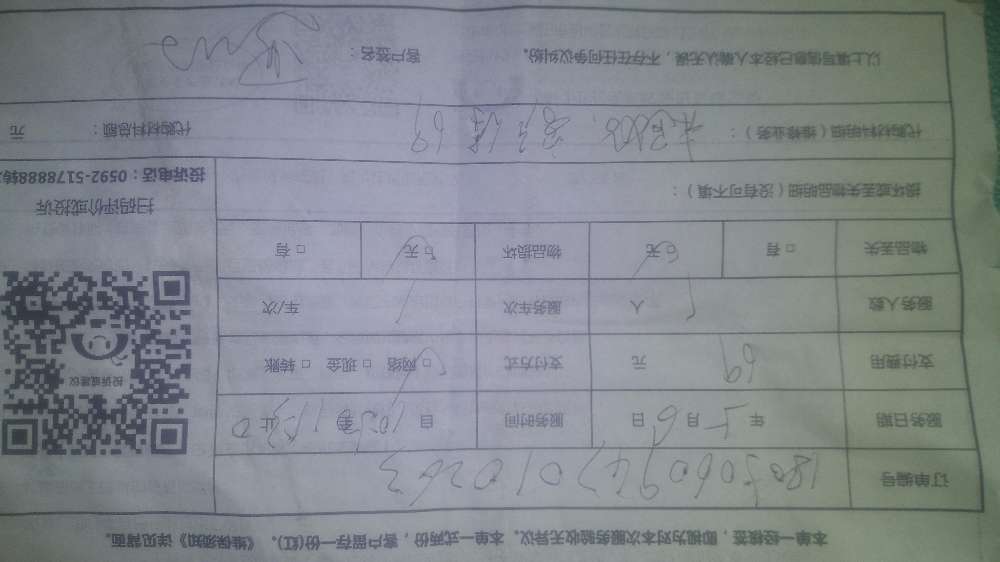 本单一经核签，即视为对本次服务验收无异议。本单一式两份，客户留存一份(红)。《维保须知》详见背面。
订单编号
服务日期 年 5 月 6 日 服务时间 自 至 止
支付费用 69 元 支付方式 □网络 □现金 □转账
服务人数 1 人 服务车次 1 车/次
物品丢失 □有 □无 物品损坏 □无 □有
损坏或丢失物品明细（没有可不填）：
代购材料明细（维修业务）： 69 代购材料总额： 元
以上填写信息已经本人确认无误，不存在任何争议纠纷。 客户签名：
投诉或建议
扫码评价或投诉
投诉电话：0592-5178888转